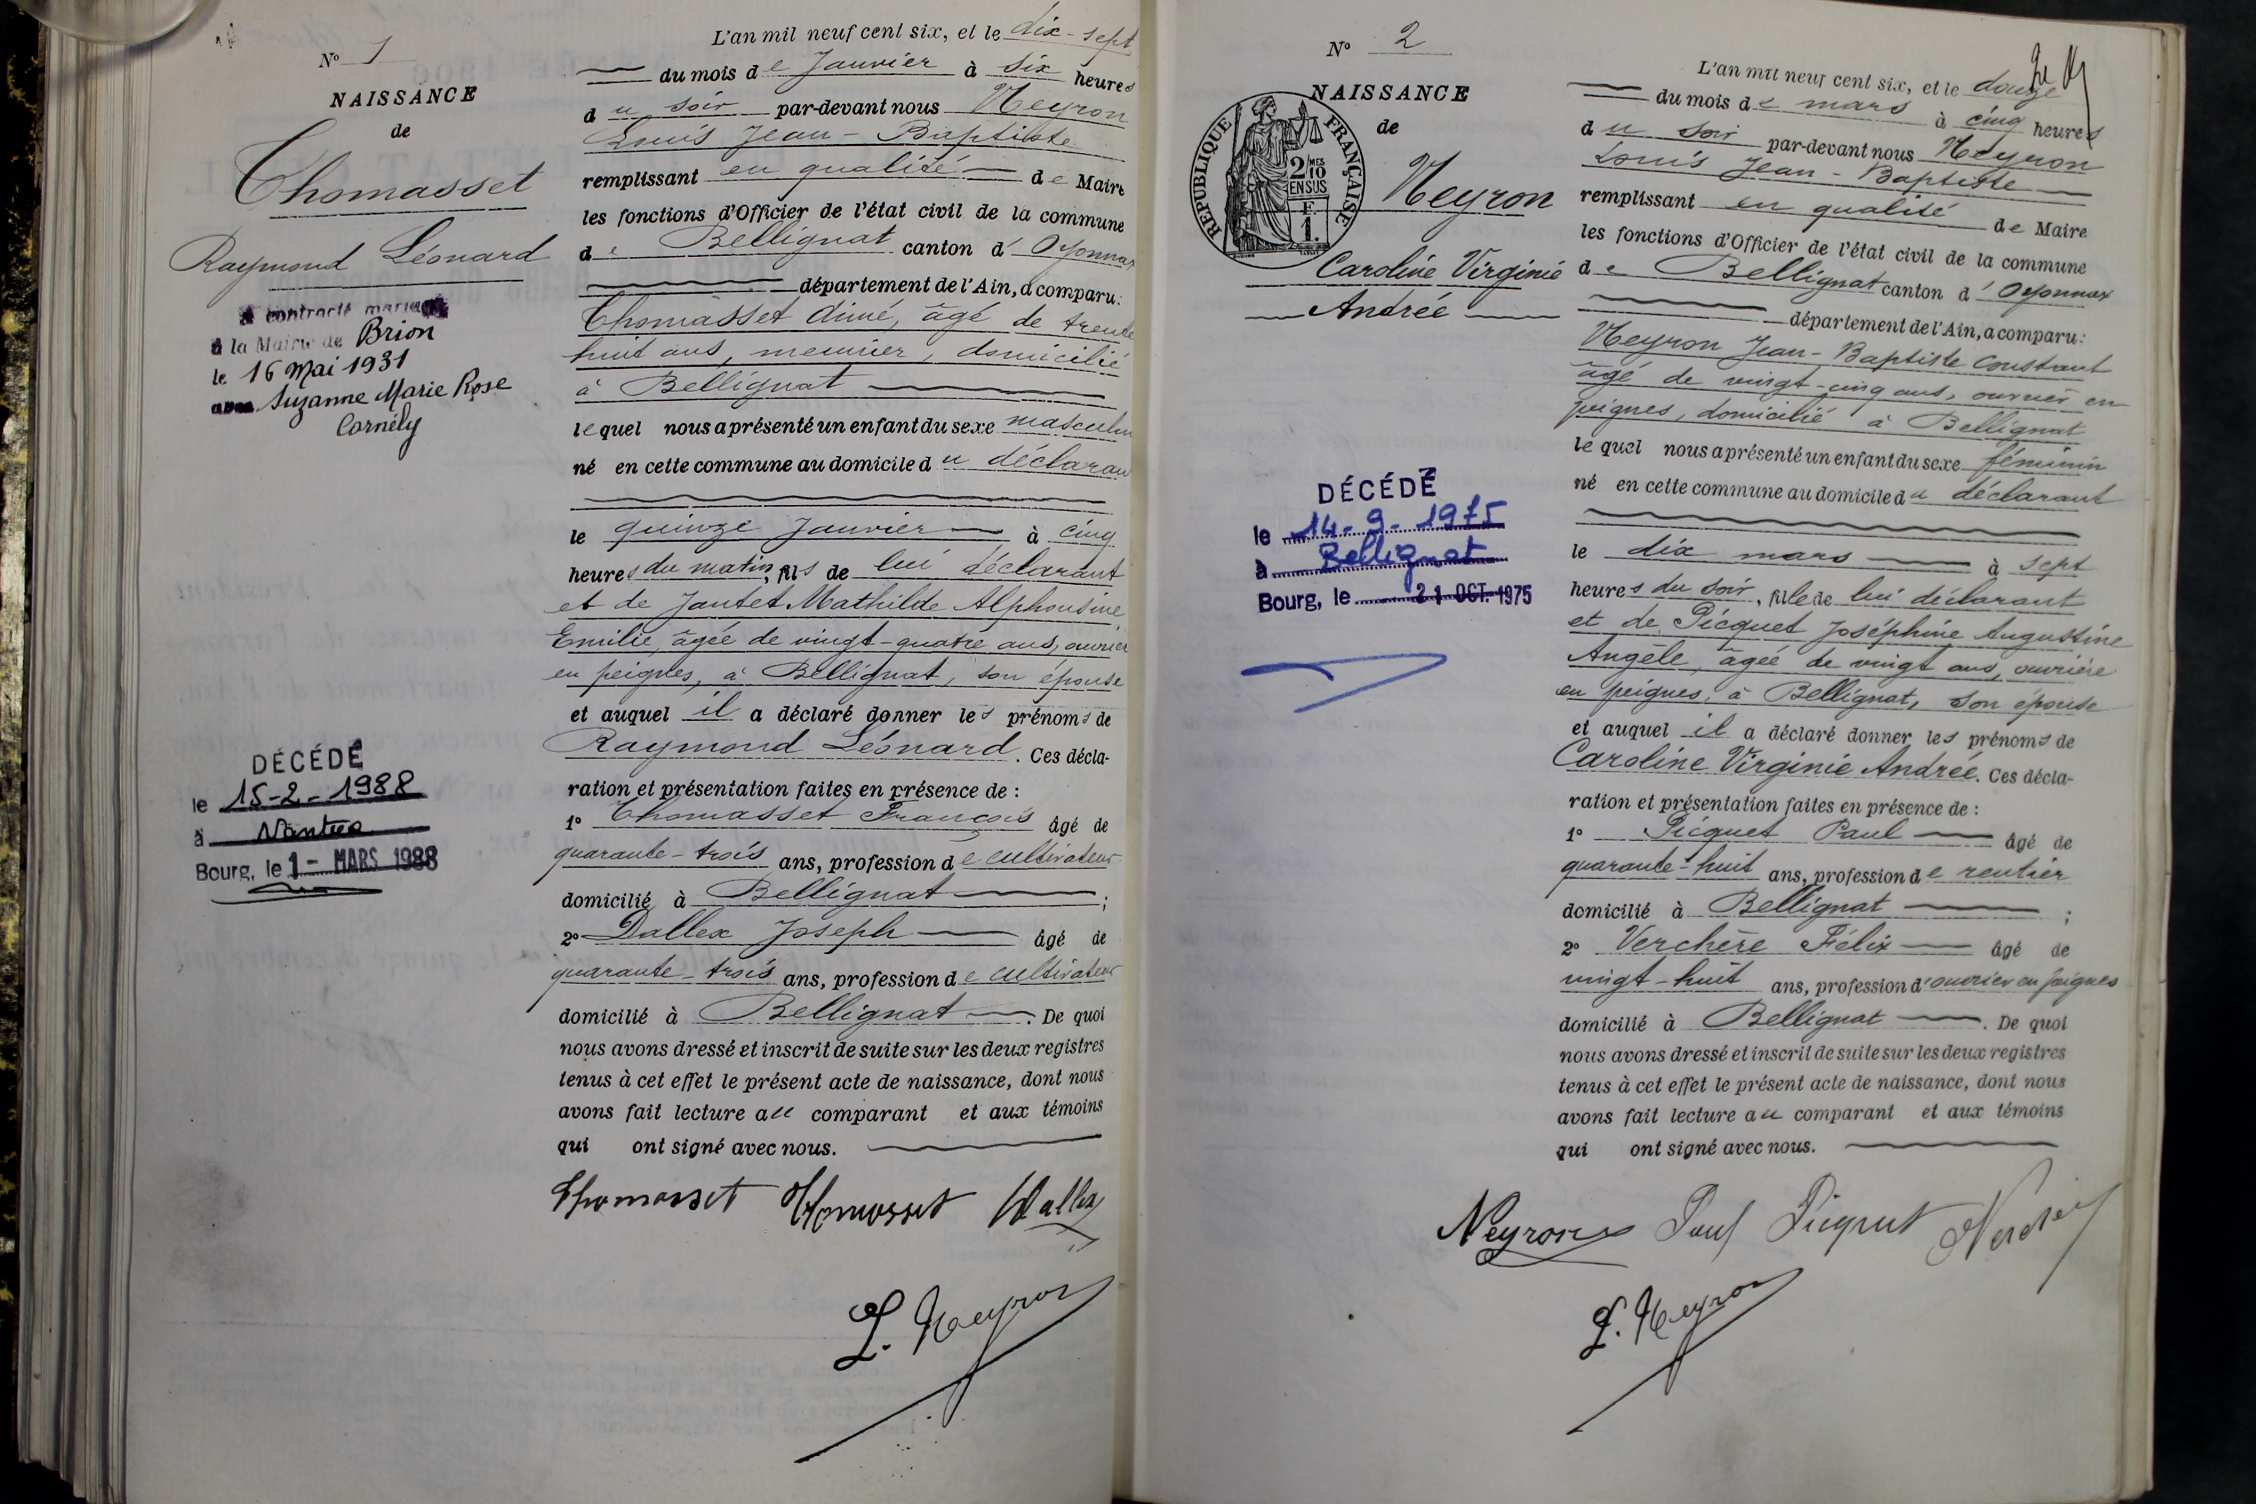 N° 1
NAISSANCE
de
Thomasset
Raymond Léonard
a contracté mariage
à la Mairie de Brion
le 16 Mai 1931
avec Suzanne Marie Rose
Cornély
DÉCÉDÉ
le 15-2-1988
à Nantua
Bourg, le 1 - MARS 1988
L'an mil neuf cent six, et le dix-sept
du mois de Janvier à six heures
du soir par-devant nous Neyron
Louis Jean-Baptiste
remplissant en qualité de Maire
les fonctions d'Officier de l'état civil de la commune
de Bellignat canton d'Oyonnax
département de l'Ain, a comparu:
Thomasset Aimé, âgé de trente
huit ans, meunier, domicilié
à Bellignat
lequel nous a présenté un enfant du sexe masculin
né en cette commune au domicile du déclarant
le quinze Janvier à cinq
heures du matin, fils de lui déclarant
et de Jantet Mathilde Alphonsine
Emilie, âgée de vingt-quatre ans, ouvrière
en peignes, à Bellignat, son épouse
et auquel il a déclaré donner les prénoms de
Raymond Léonard. Ces décla-
ration et présentation faites en présence de :
1° Thomasset François âgé de
quarante-trois ans, profession de cultivateur
domicilié à Bellignat ;
2° Dallex Joseph âgé de
quarante-trois ans, profession de cultivateur
domicilié à Bellignat. De quoi
nous avons dressé et inscrit de suite sur les deux registres
tenus à cet effet le présent acte de naissance, dont nous
avons fait lecture au comparant et aux témoins
qui ont signé avec nous.
Thomasset Thomasset Dallex
L. Neyron
N° 2
NAISSANCE
de
RÉPUBLIQUE FRANÇAISE
2 MES
10
EN SUS
F.
1.
Neyron
Caroline Virginie
Andrée
DÉCÉDÉ
le 14-9-1975
à Bellignat
Bourg, le 21 OCT. 1975
L'an mil neuf cent six, et le douze
du mois de mars à cinq heures
du soir par-devant nous Neyron
Louis Jean-Baptiste
remplissant en qualité de Maire
les fonctions d'Officier de l'état civil de la commune
de Bellignat canton d'Oyonnax
département de l'Ain, a comparu:
Neyron Jean-Baptiste Constant
âgé de vingt-cinq ans, ouvrier en
peignes, domicilié à Bellignat
lequel nous a présenté un enfant du sexe féminin
né en cette commune au domicile du déclarant
le dix mars à sept
heures du soir, fille de lui déclarant
et de Picquet Joséphine Augustine
Angèle, âgée de vingt ans, ouvrière
en peignes, à Bellignat, son épouse
et auquel il a déclaré donner les prénoms de
Caroline Virginie Andrée. Ces décla-
ration et présentation faites en présence de :
1° Picquet Paul âgé de
quarante-huit ans, profession de rentier
domicilié à Bellignat ;
2° Verchère Félix âgé de
vingt-huit ans, profession d'ouvrier en peignes
domicilié à Bellignat. De quoi
nous avons dressé et inscrit de suite sur les deux registres
tenus à cet effet le présent acte de naissance, dont nous
avons fait lecture au comparant et aux témoins
qui ont signé avec nous.
Neyron Paul Picquet
L. Neyron